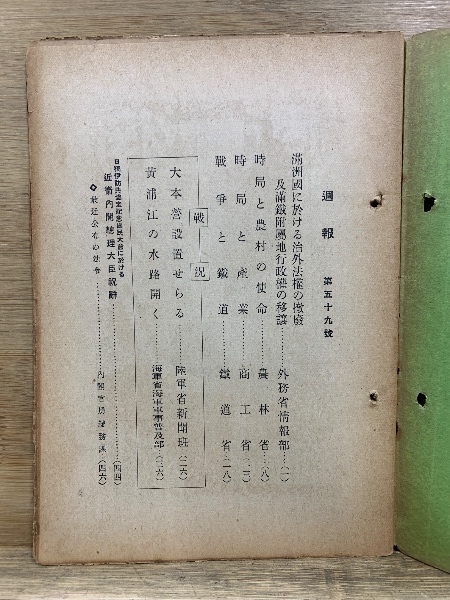 週報 第五十九號
滿洲國に於ける治外法權の撤廢
及滿鐵附屬地行政權の移讓……外務省情報部…(一)
時局と農村の使命……農林省…(八)
時局と產業……商工省…(一三)
戰爭と鐵道……鐵道省…(一八)
戰況
大本營設置せらる……陸軍省新聞班…(二六)
黃浦江の水路開く……海軍省海軍軍事普及部…(三六)
日獨伊防共協定記念國民大會に於ける
近衞內閣總理大臣祝辭……(四四)
◇最近公布の法令……內閣官房總務課…(四六)